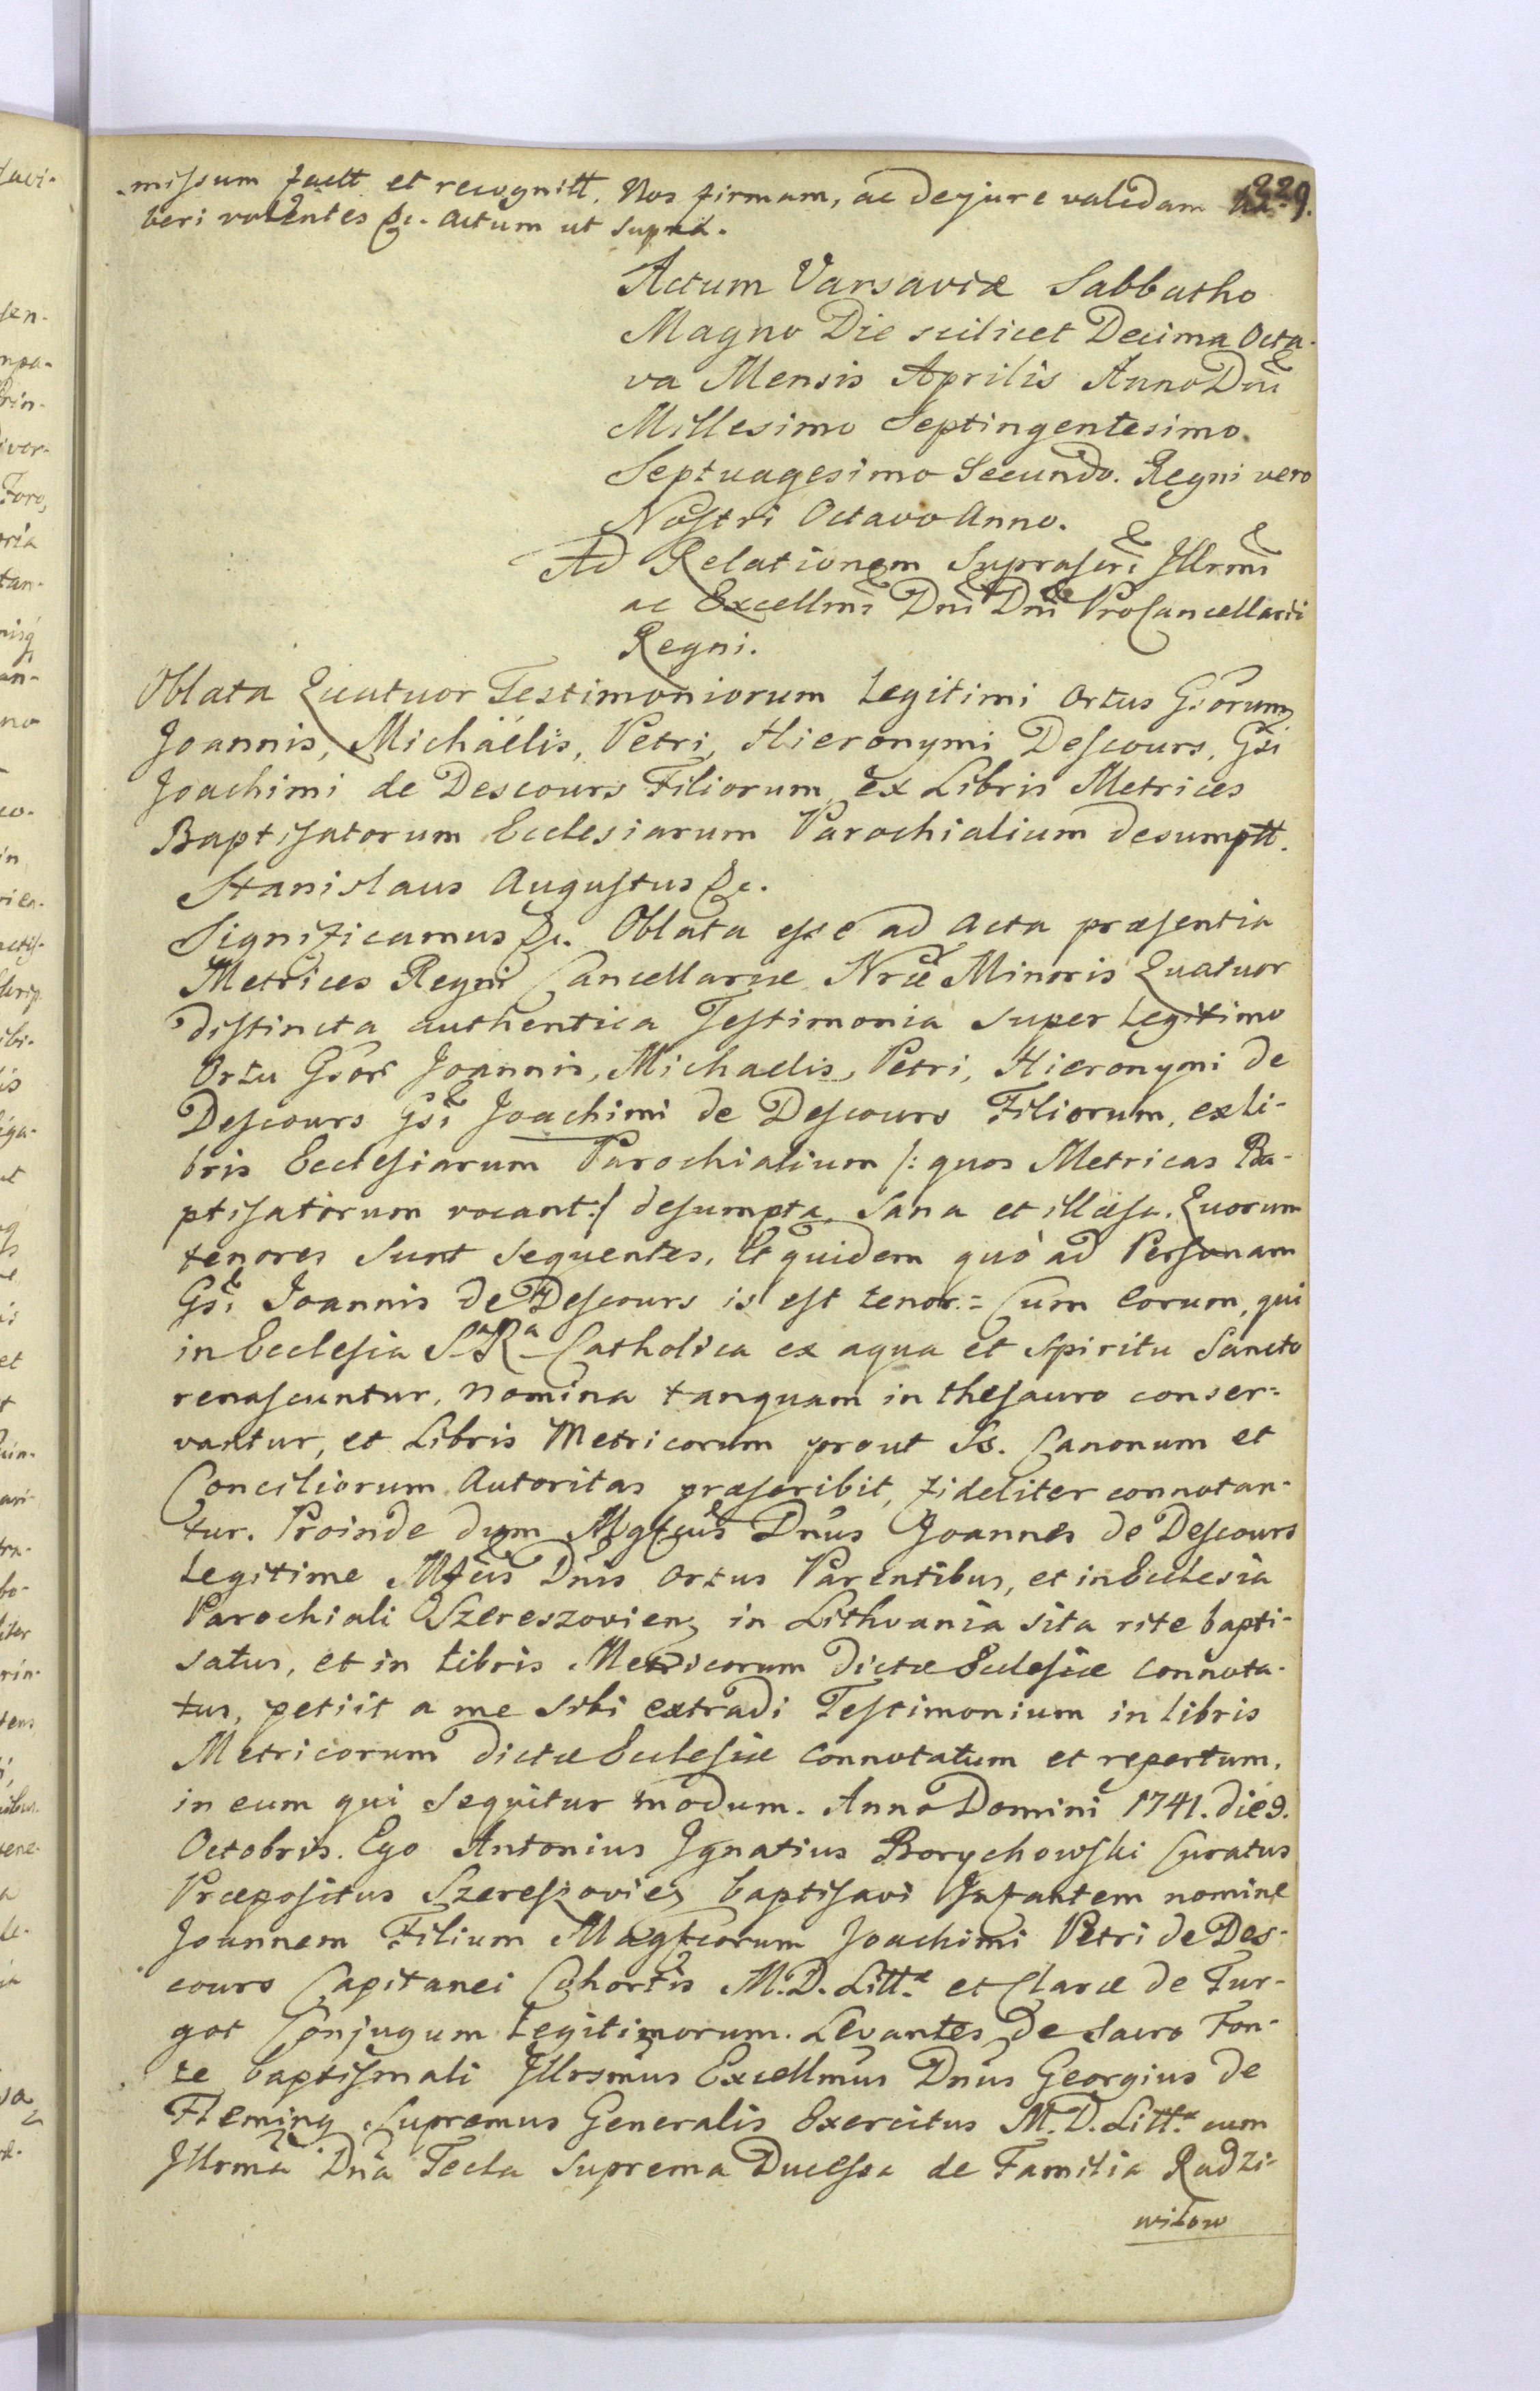 229.
-missum facit et recognitt. Nos firmam, ac dejure validam ha-
beri volentes &c. Actum ut supra.
Actum Varsaviæ Sabbatho
Magno Die scilicet Decima Octa-
va Mensis Aprilis Anno Dni
Millesimo Septingentesimo
Septuagesimo Secundo. Regni vero
Nostri Octavo Anno.
Ad Relationem Suprascri Jllrmi
ac Excellmi Dni Dni ProCancellarii
Regni.
Oblata Quatuor Testimoniorum Legitimi Ortus Gsorum
Joannis, Michaëlis, Petri, Hieronymi Descours, Gsi
Joachimi de Descours Filiorum, ex Libris Metrices
Baptisatorum Ecclesiarum Parochialium desumptt.
Stanislaus Augustus &c.
Significamus &c. Oblata esse ad Acta præsentia
Metrices Regni Cancellariæ Nræ Minoris Quatuor
distincta authentica Testimonia super Legitimo
Ortu Gsor Joannis, Michaelis, Petri, Hieronymi de
Descours Gsi Joachimi de Descours Filiorum, ex li-
bris Ecclesiarum Parochialium /: quos Metricas Ba-
ptisatorum vocant :/ desumpta, Sana et illæsa. Quorum
tenores sunt sequentes. Et quidem quò ad Personam
Gsi Joannis de Descours is est tenor. = Cum eorum, qui
in Ecclesia Sa Ra Catholica ex aqua et Spiritu Sancto
renascuntur, nomina tanquam in thesauro conser=
vantur, et Libris Metricorum prout Ss. Canonum et
Conciliorum Autoritas præscribit, fideliter connotan-
tur. Proinde dum Mgfcus Dnus Joannes de Descours
Legitime Mfcis Dnis Ortus Parentibus, et in Ecclesia
Parochiali Szereszovien, in Lithvania sita rite bapti-
satus, et in Libris Metricorum dictæ Ecclesiæ connota-
tus, petiit a me sibi extradi Testimonium in libris
Metricorum dictæ Ecclesiæ connotatum et repertum,
in eum qui sequitur modum. Anno Domini 1741. die 9.
Octobris. Ego Antonius Jgnatius Borychowski Curatus
Præpositus Szereszovien, baptisavi Jnfantem nomine
Joannem Filium Magfcorum Joachimi Petri de Des-
cours Capitanei Cohortis M.D. Litt. et Claræ de Tur-
got Conjugum Legitimorum. Levantes de Sacro Fon-
te baptismali Jllrsmus Excellmus Dnus Georgius de
Fleming Supremus Generalis Exercitus M.D. Litt. cum
Jllrma Dna Tecla Suprema Ducessa de Familia Radzi-
wiłow